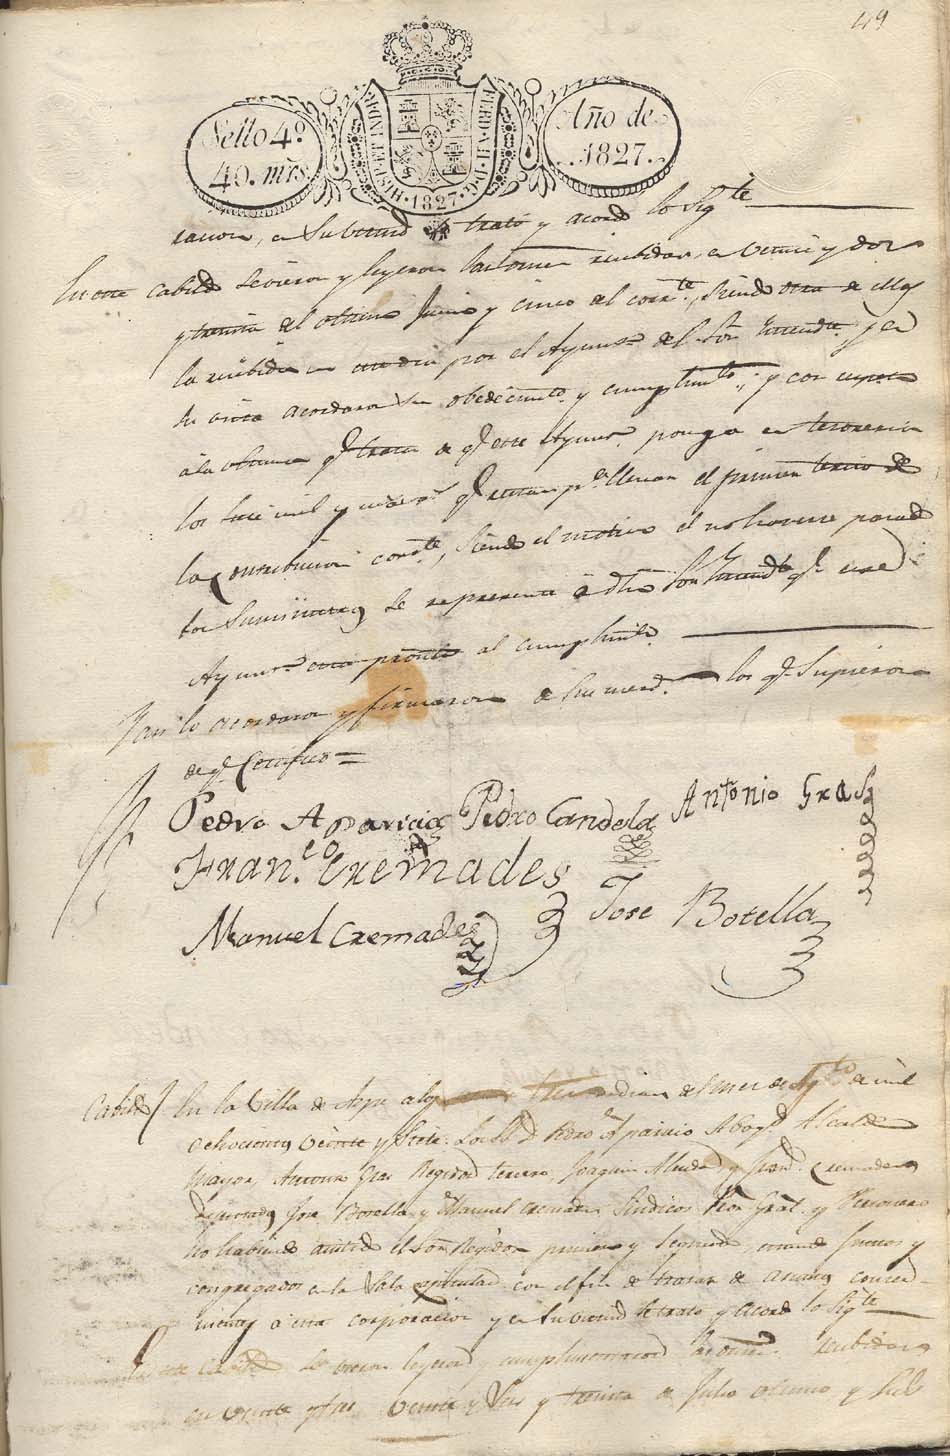 49
Sello 4º
40. mrs
HISP. ET IND. R. 1827. FERD. VII. D. G.
Año de
1827.
racion, en su virtud se trató y acordó lo Sigte
En este Cabildo se vieron y leyeron las ordenes recibidas en veinte y dos
y treinta del ultimo Junio y cinco del corrte, siendo otra de ellas
la recibida en este dia por el Ayunto del Sor Intendte y en
su vista acordaron su obedecimto y cumplimto; y con respecto
á la ultima qe trata de qe este Ayunto ponga en tesoreria
los siete mil y qe restan pa llenar el primer tercio de
la Contribucion corrte, siendo el motivo el no haverse pasado
los Suministros se represente á dho Sor Intendte qe este
Ayunto esta pronto al cumplimto
Y asi lo acordaron y firmaron de sus mercds los qe supieron
de qe Certifico =
Pedro Aparicio Pedro Candela Antonio Gras
Franco Cremades
Jose Botella
Manuel Cremades
Cabildo En la Villa de Aspe a los tres dias del mes de Agto de mil
ochocientos veinte y siete. Los SS. D. Pedro Aparicio Abogdo Alcalde
mayor, Antonio Gras Regidor tercero, Joaquin Almodovar y Franco Cremades
Diputados Jose Botella y Manuel Cremades Sindicos Pror Gral y Personero
no habiendo asistido el Sor Regidor primero y segundo, estando juntos y
congregados en la Sala capitular con el fin de tratar de asuntos concer-
nientes á esta corporacion y en su virtud se trató y acordó lo Sigte
En este Cabildo se vieron leyeron y cumplimentaron las ordenes recibidas
en veinte y tres veinte y seis y treinta de Julio ultimo y